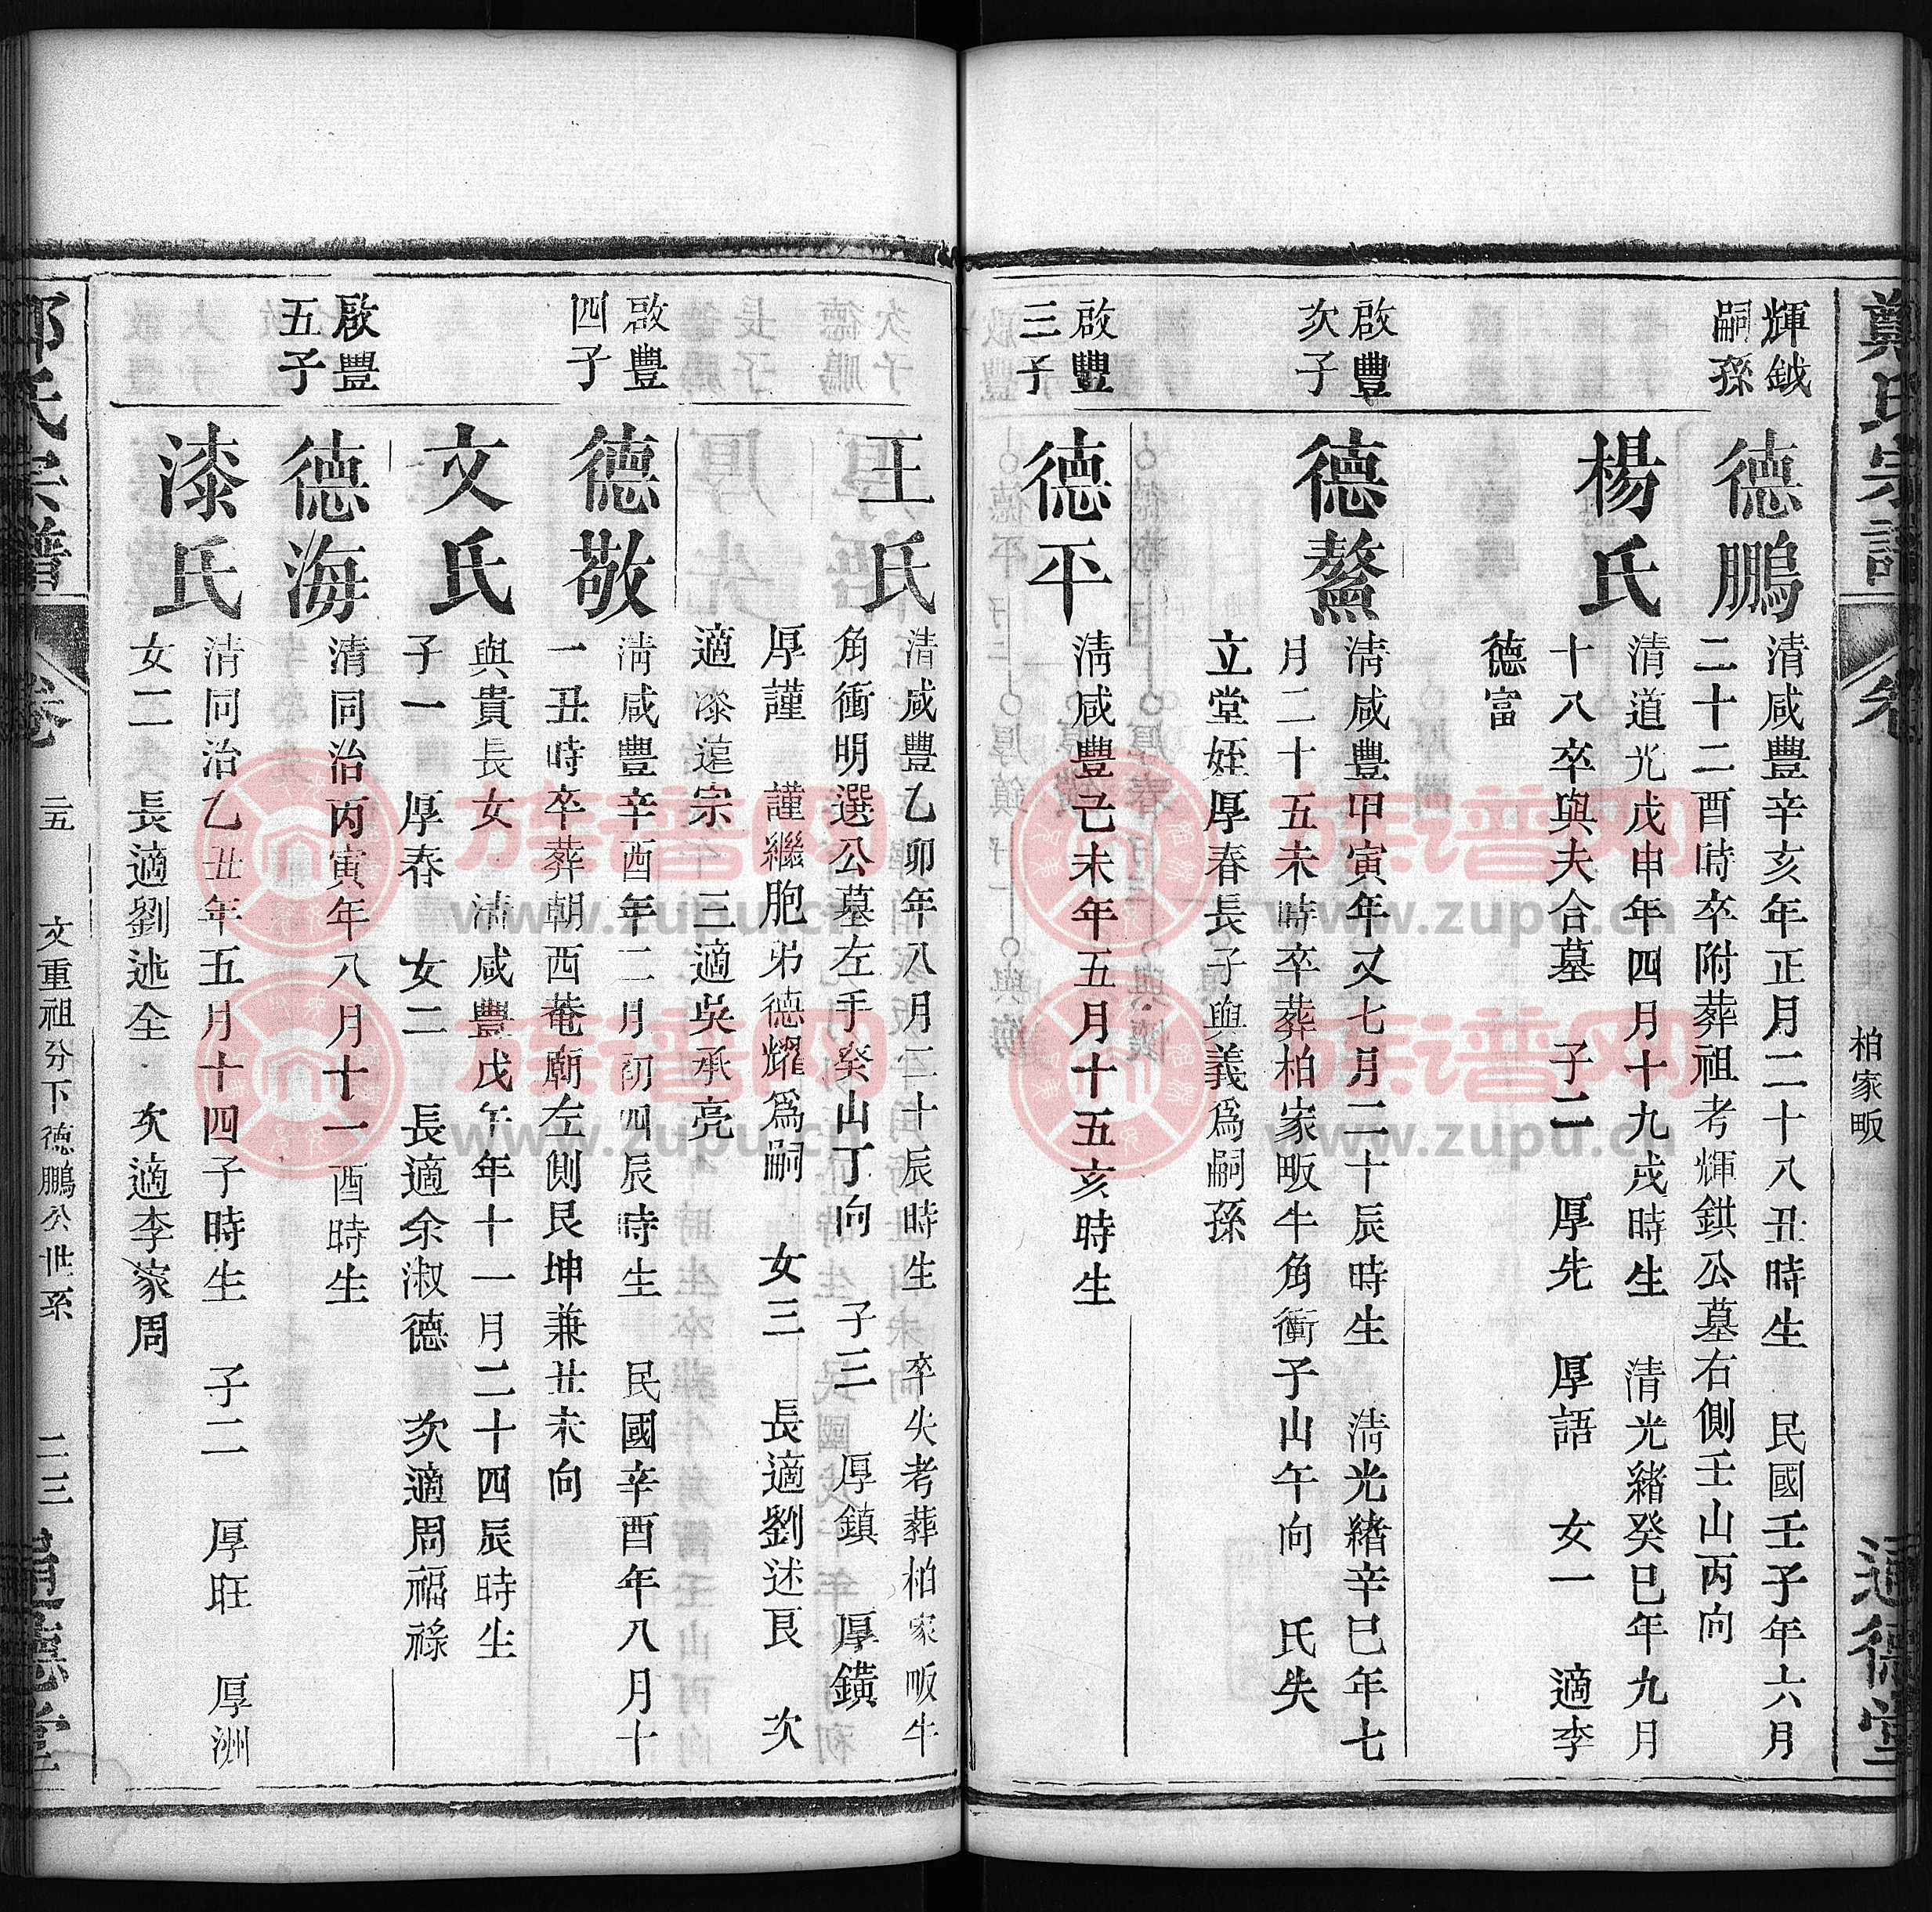 鄭氏宗譜
卷
柏家畈
通德堂
輝鉞
嗣孫
德鵬
清咸豐辛亥年正月二十八丑時生 民國壬子年六月
二十二酉時卒附葬祖考輝鉷公墓右側壬山丙向
楊氏
清道光戊申年四月十九戌時生 清光緒癸巳年九月
十八卒與夫合墓 子二 厚先 厚語 女一 適李
德富
啟豐
次子
德鰲
清咸豐甲寅年又七月二十辰時生 清光緒辛巳年七
月二十五未時卒葬柏家畈牛角衝子山午向 氏失
立堂姪厚春長子與義為嗣孫
啟豐
三子
德平
清咸豐己未年五月十五亥時生
王氏
清咸豐乙卯年八月二十辰時生 卒失考葬柏家畈牛
角衝明選公墓左手癸山丁向 子三 厚鎮 厚鐄
厚謹 謹繼胞弟德耀為嗣 女三 長適劉述艮 次
適漆遠宗 三適吳承亮
啟豐
四子
德敬
清咸豐辛酉年二月初四辰時生 民國辛酉年八月十
一丑時卒葬朝西菴廟左側艮坤兼丑未向
文氏
與貴長女 清咸豐戊午年十一月二十四辰時生
子一 厚春 女二 長適余淑德 次適周福祿
啟豐
五子
德海
清同治丙寅年八月十一酉時生
漆氏
清同治乙丑年五月十四子時生 子二 厚旺 厚洲
女二 長適劉述全 次適李家周
氏宗譜
卷 二五 文重祖分下德鵬公世系 二三 通德堂
族谱网
www.zupu.cn
族谱网
www.zupu.cn
族谱网
www.zupu.cn
族谱网
www.zupu.cn